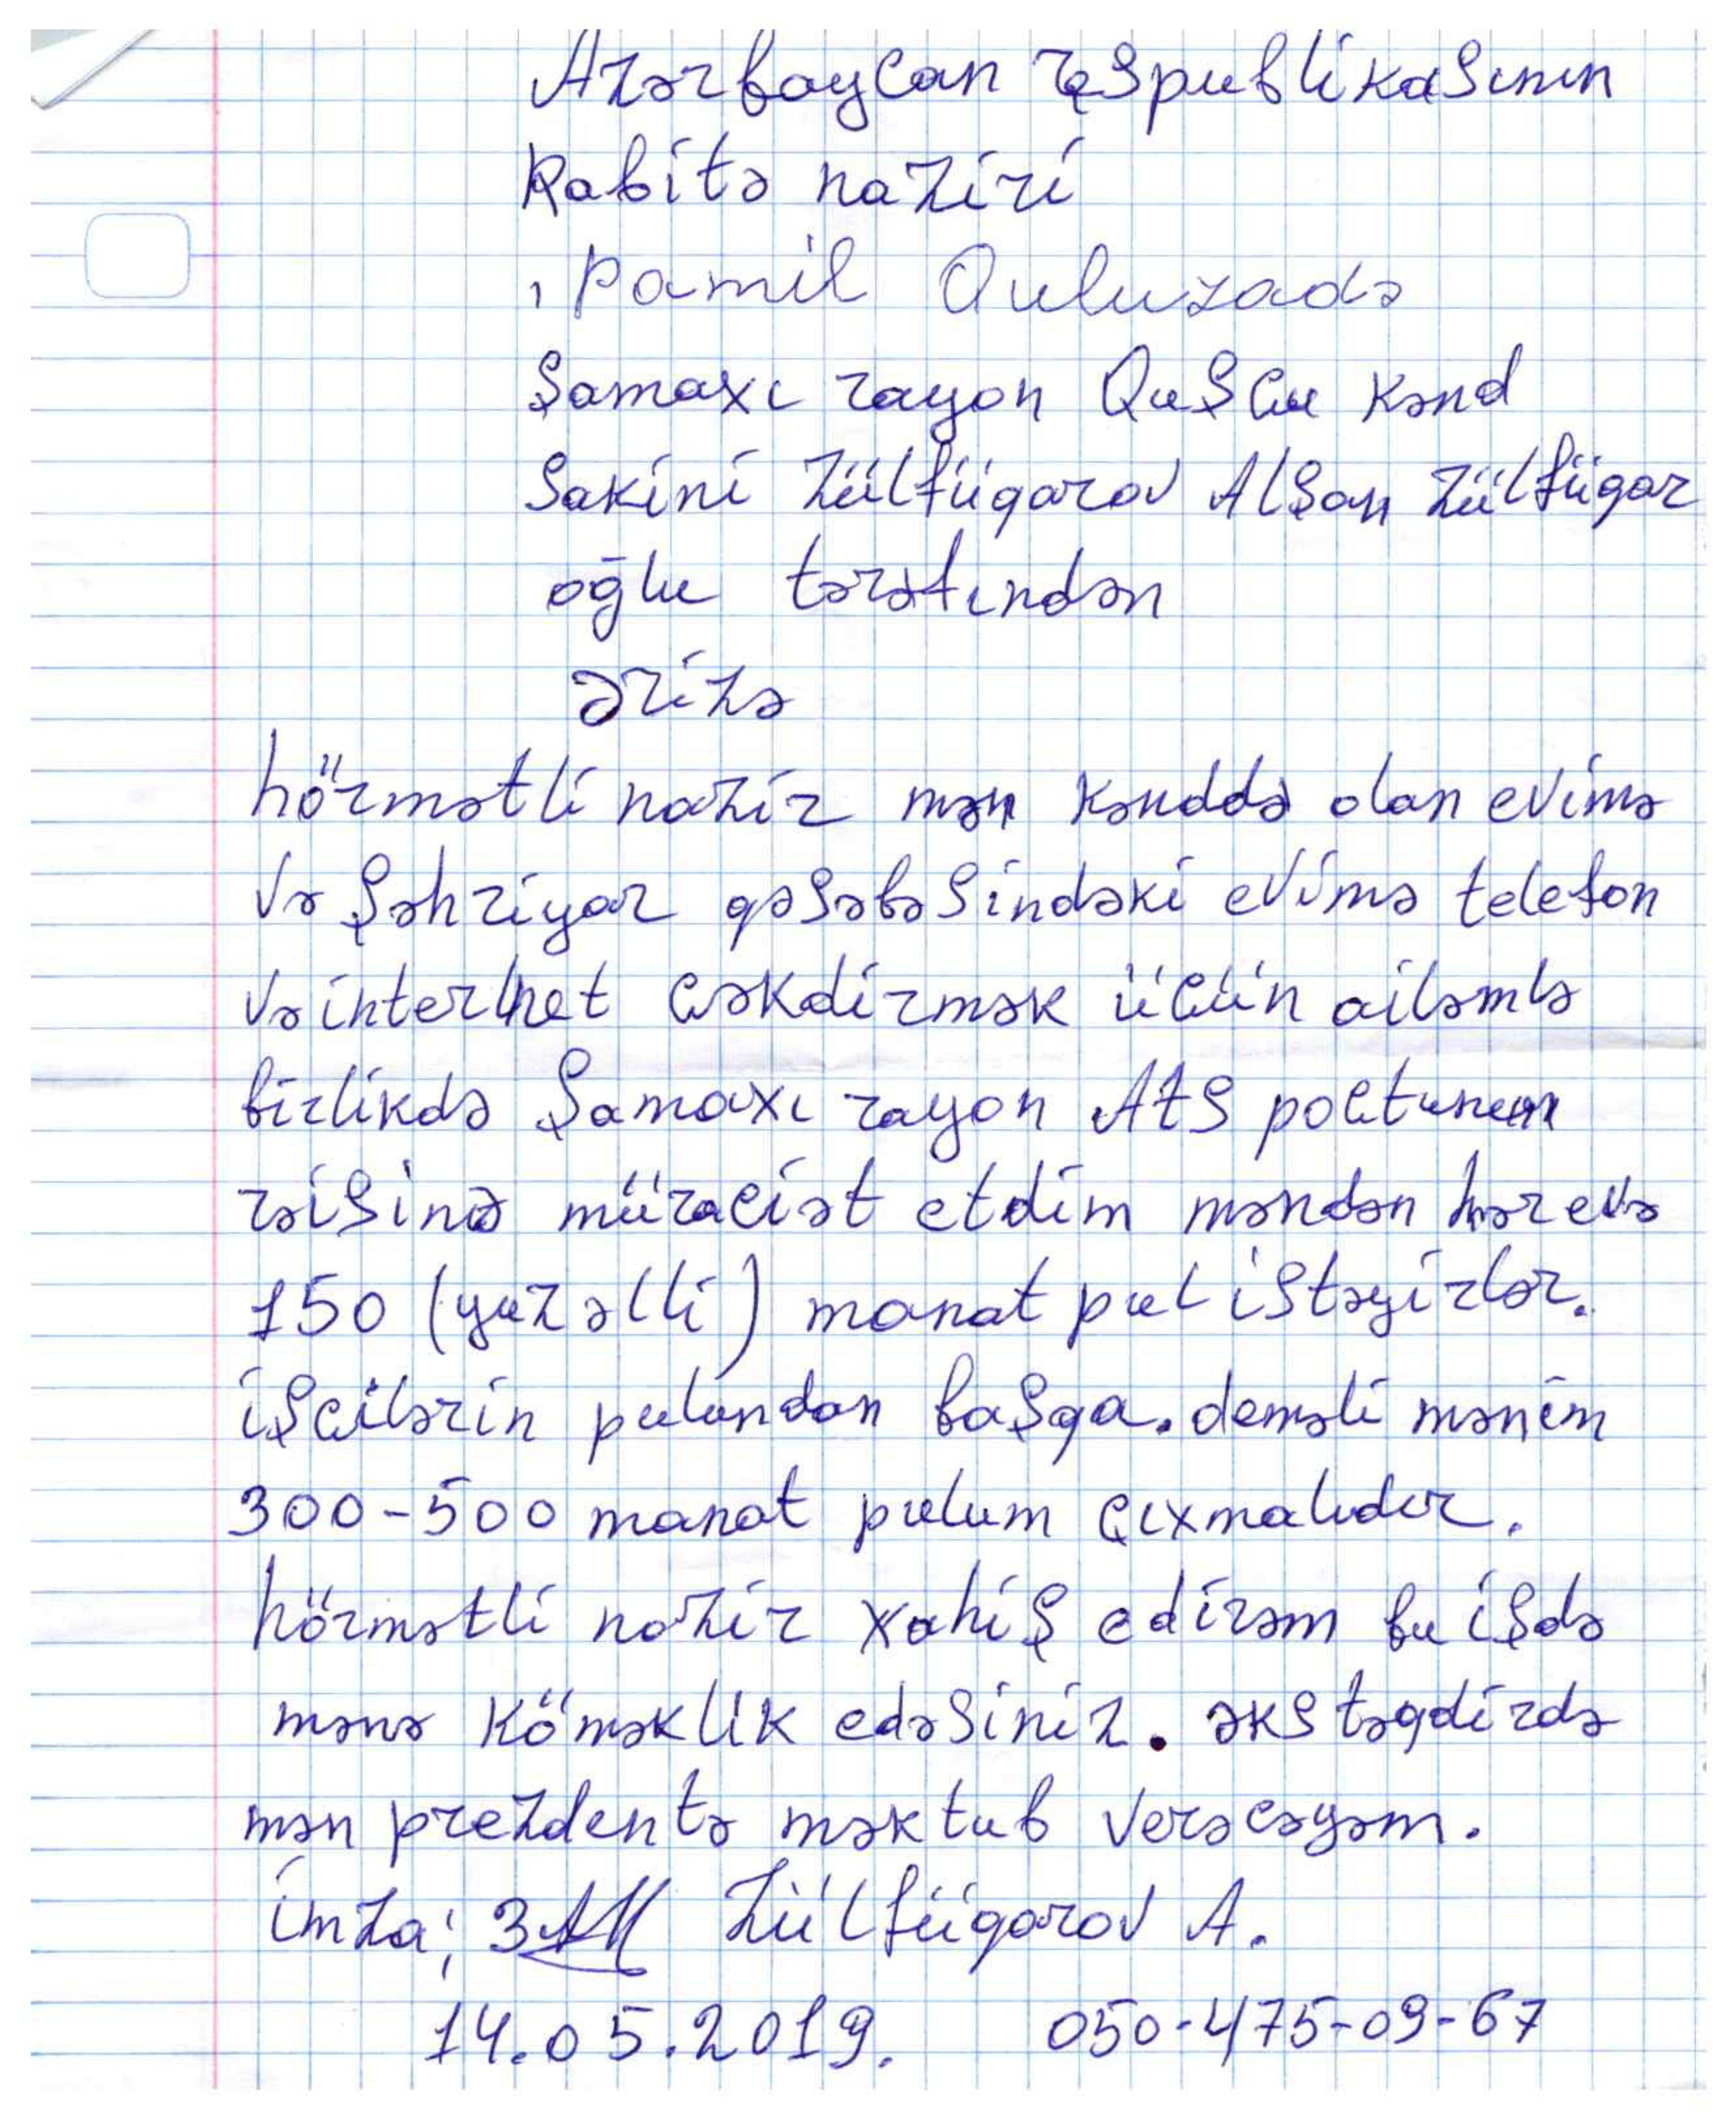 Azərbaycan respublikasının
Rabitə naziri
Ramil Quluzadə
Şamaxı rayon Quşçu kənd
Sakini Zülfüqarov Alşan Zülfüqar
oğlu tərəfindən
Ərizə
hörmətli nazir mən kənddə olan evimə
və Şəhriyar qəsəbəsindəki evimə telefon
və internet çəkdirmək üçün ailəmlə
birlikdə Şamaxı rayon ATS poçtunun
rəisinə müraciət etdim məndən hər evə
150 (yuz əlli) manat pul istəyirlər.
işçilərin pulundan başqa. deməli mənim
300-500 manat pulum çıxmalıdır.
hörmətli nazir xahiş edirəm bu işdə
mənə köməklik edəsiniz. əks təqdirdə
mən prezdentə məktub verəcəyəm.
imza; Zülfüqarov A.
14.05.2019. 050-475-09-67